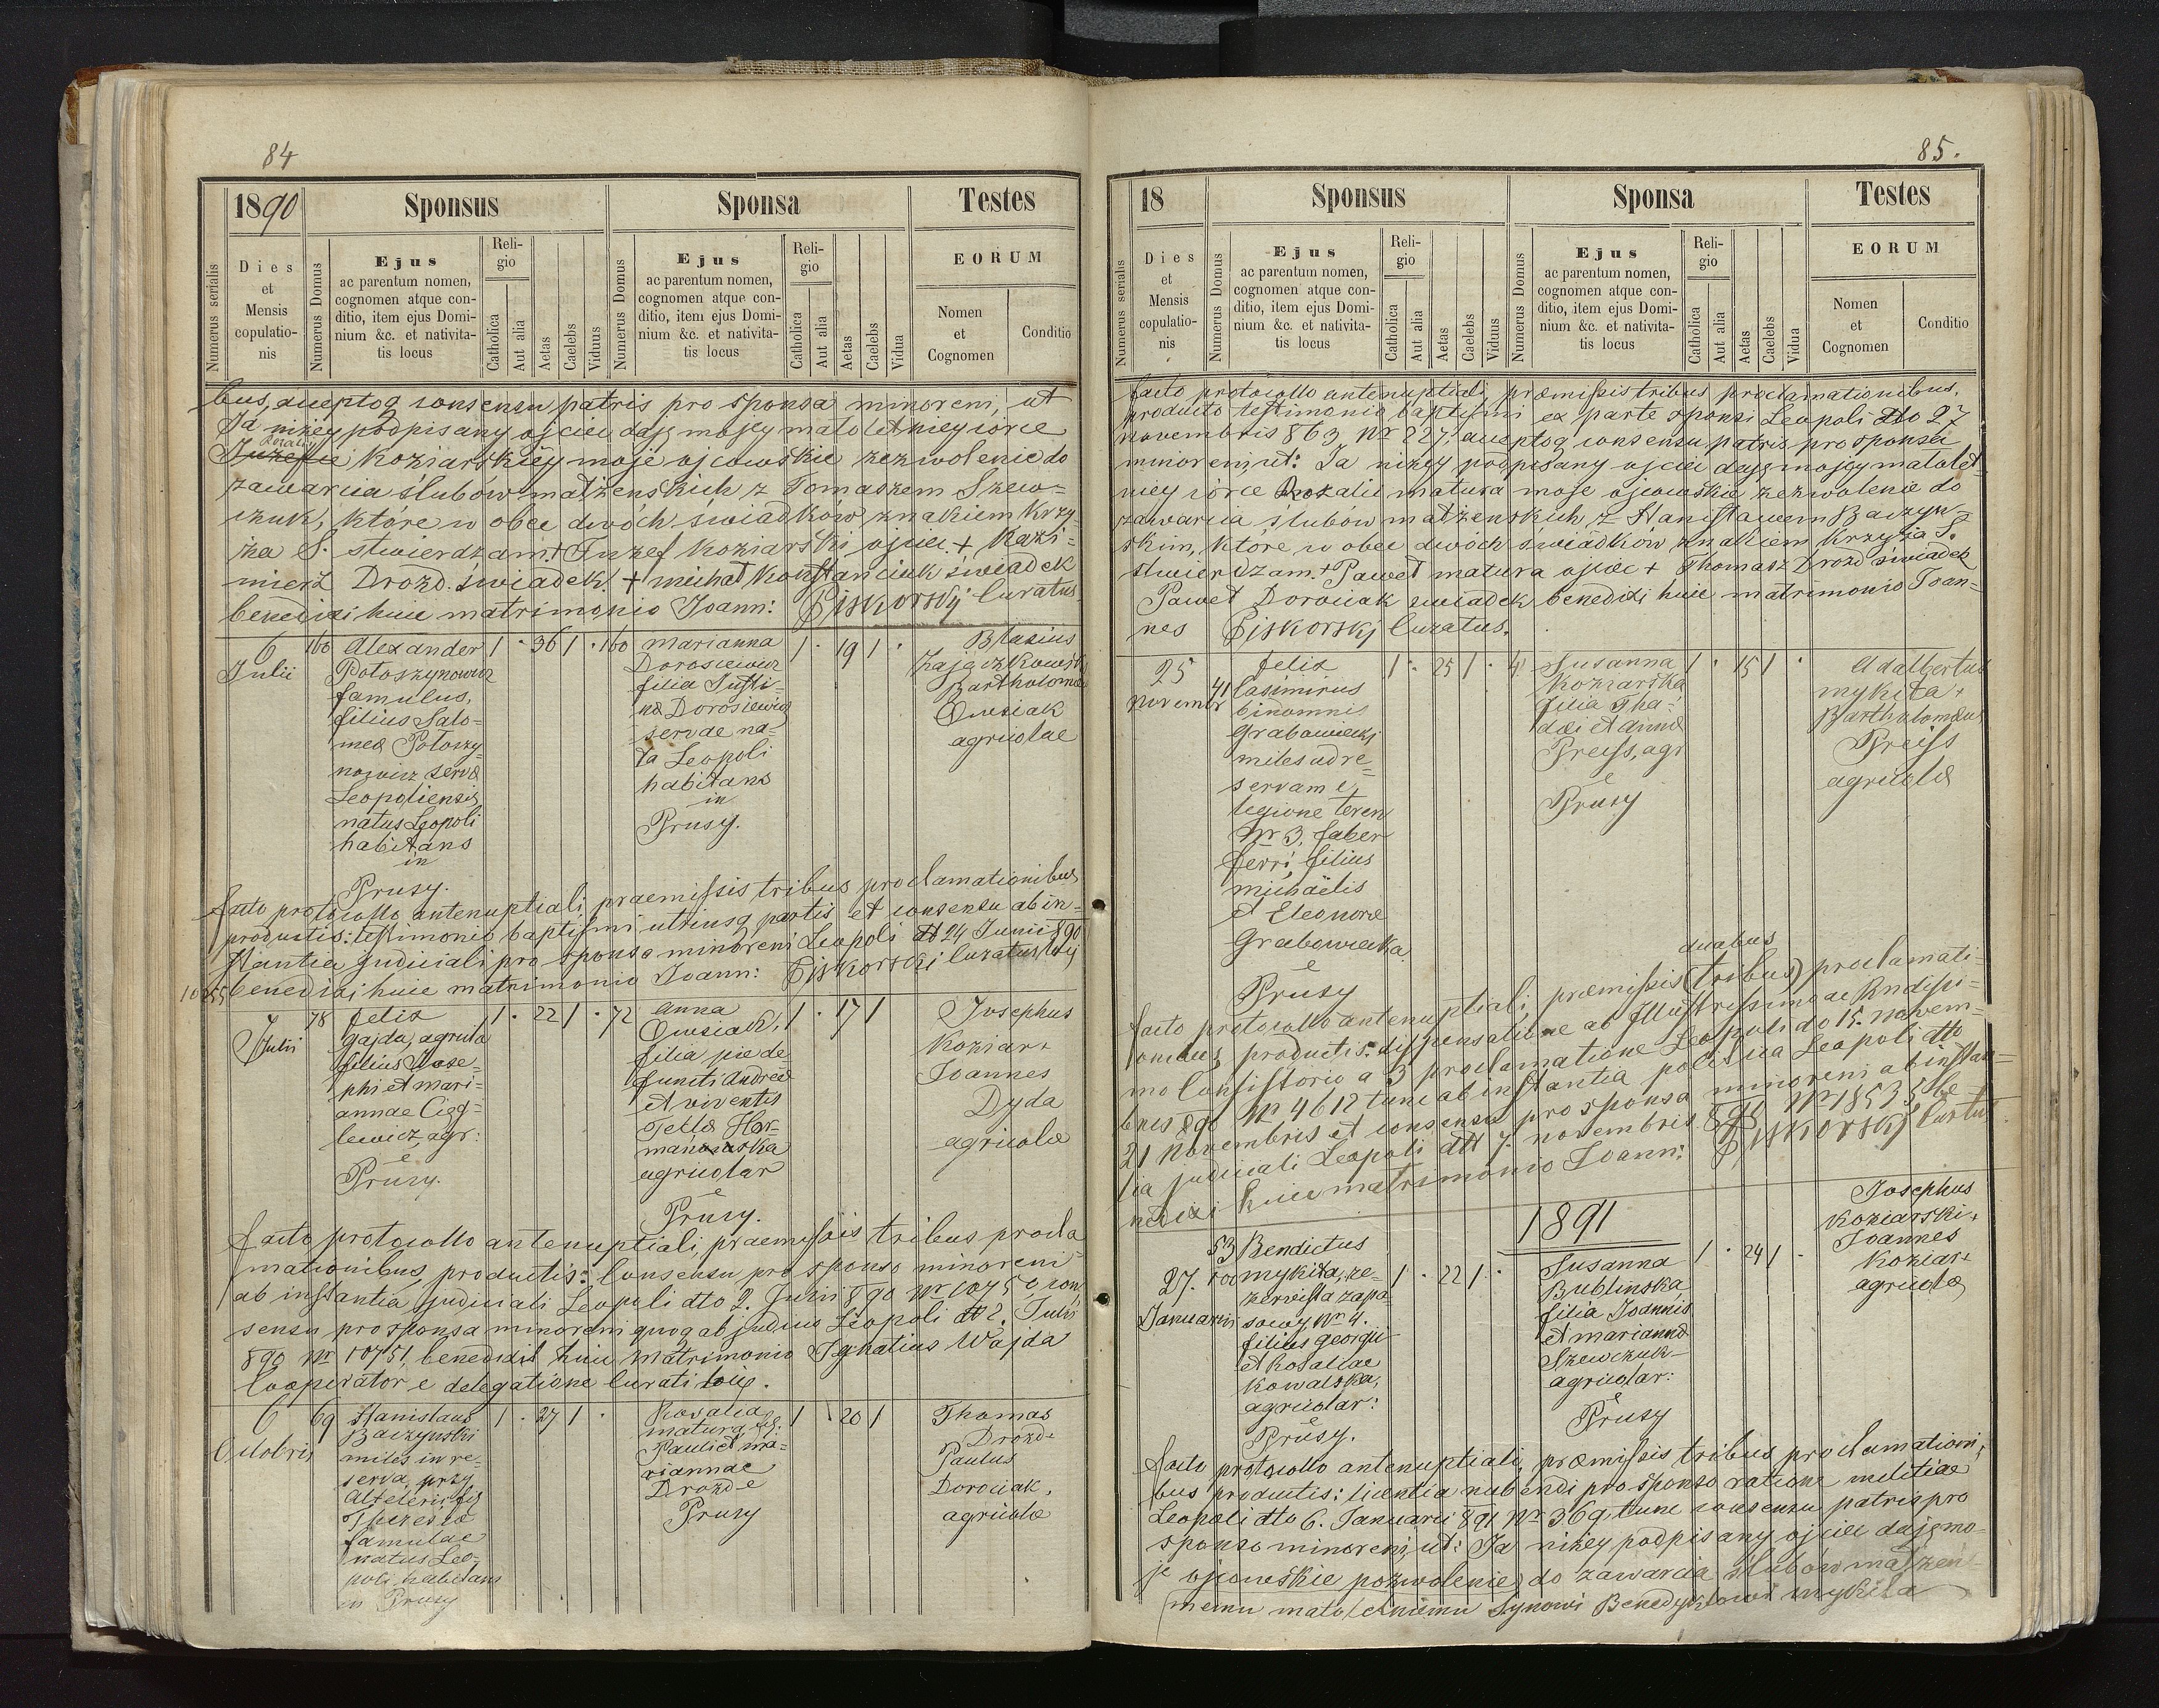 84
1890
Sponsus
Sponsa
Testes
Numerus serialis
Dies
et
Mensis
copulatio-
nis
Numerus Domus
Ejus
ac parentum nomen,
cognomen atque con-
ditio, item ejus Domi-
nium &c. et nativita-
tis locus
Reli-
gio
Catholica
Aut alia
Aetas
Caelebs
Viduus
Numerus Domus
Ejus
ac parentum nomen,
cognomen atque con-
ditio, item ejus Domi-
nium &c. et nativita-
tis locus
Reli-
gio
Catholica
Aut alia
Aetas
Caelebs
Vidua
EORUM
Nomen
et
Cognomen
Conditio
bus, acceptoq consensu patris pro sponsa minoreni, ut
Ja niżey podpisany ojciec daję mojey małoletniey córce
Rozalii
Józefie Koziarskiey moje ojcowskie zezwolenie do
zawarcia ślubów małżeńskich z Tomaszem Szew=
czuk, które w obec dwóch świadków znakiem krzy=
ża S. stwierdzam + Józef Koziarski ojciec + Kazi=
mierz Drozd świadek + michał Konstanciuk świadek
benedixi huic matrimonio Joann: Piskorskj Curatus
6
Julii
160
Alexander
Potoszynowicz
famulus,
filius Salo=
meæ Potoszy=
nowicz servæ
Leopoliensis
natus Leopoli
habitans
in
Prusy.
1 · 36 1 ·
160
Marianna
Dorosiewicz
filia Justi=
næ Dorosiewicz
servae na=
ta Leopoli
habitans
in
Prusy.
1 · 19 1 ·
Blasius
Zajączkowski
Bartholomæ
Owsiak
agricolae
facto protocollo antenuptiali, praemissis tribus proclamationibus
productis: testimonio baptismi utriusq partis et consensu ab in=
stantia judiciali pro sponsa minoreni Leopoli dto 24 Junii 890
benedixi huic matrimonio Joann: Piskorskj Curatus loci
7
Julii
78
Felix
Gajda, agricola
filius Jose=
phi et Mari=
annae Cigg=
lewicz, agr:
e
Prusy.
1 · 22 1 ·
72
Anna
Owsiak,
filia pie de
functi Andreæ
et viventis
Teklæ Har=
manowska
agricolar
e
Prusy.
1 · 17 1
Josephus
Koziar +
Joannes
Dyda
agricolæ
facto protocollo antenuptiali, praemissis tribus procla=
mationibus, productis: Consensu pro sponso minoreni
ab instantia judiciali Leopoli dto 2. Julii 890 Nr 10750, con=
sensu pro sponsa minoreni quoq ab judicio Leopoli dto 2. Julii
890 Nr 10751, benedixit huic matrimonio Ignatius Wajda
Cooperator e delegatione Curati loci.
6
Octobris
69
Stanislaus
Baczynski
miles in re=
serva, przy
Altelerii, fil
Theresiæ
famulae
natus Leo=
poli, habitans
in Prusy
1 · 27 1 ·
Rosalia
matura, fil:
Pauli et Ma=
riannae
Drozd e
Prusy
1 · 20 1
Thomas
Drozd +
Paulus
Dorociak,
agricolæ
85.
18
Sponsus
Sponsa
Testes
Numerus serialis
Dies
et
Mensis
copulatio-
nis
Numerus Domus
Ejus
ac parentum nomen,
cognomen atque con-
ditio, item ejus Domi-
nium &c. et nativita-
tis locus
Reli-
gio
Catholica
Aut alia
Aetas
Caelebs
Vidus
Numerus Domus
Ejus
ac parentum nomen,
cognomen atque con-
ditio, item ejus Domi-
nium &c. et nativita-
tis locus
Reli-
gio
Catholica
Aut alia
Aetas
Caelebs
Vidua
EORUM
Nomen
et
Cognomen
Conditio
facto protocollo antenuptiali, præmissis tribus proclamationibus,
producto testimonio baptismi ex parte sponsi Leopoli dto 27
novembris 863 Nr 227, acceptoq consensu patris pro sponsa
minoreni, ut: Ja niżey podpisany ojciec daję mojey małolet=
niey córce Rozalii matura moje ojcowskie zezwolenie do
zawarcia ślubów małżeńskich z Stanisławem Baczyn=
skim, które w obec dwóch świadków znakiem Krzyża S.
stwierdzam. + Paweł matura ojciec + Thomasz Drozd świadek
Paweł Dorociak świadek benedixi huic matrimonio Joan=
nes Piskorskj Curatus.
25
Novembr
41
Felix
Casimirus
binomnis
Grabowieckj
miles ad re=
servam e
legione teren
Nr 3, faber
ferri, filius
michaëlis
et Eleonoræ
Grabowiecka
e
Prusy
1 · 25 1 ·
41
Susanna
Koziarska
filia Tha=
dæi et Annæ
Preiss, agr
e
Prusy
1 · 15 1 ·
Adalbertus
mykita +
Bartholomæus
Preiss
agricolæ
duabus
facto protocollo antenuptiali, præmissis (tribus) proclamati=
onibus, productis: dispensatione ab Illustrissimo ac Rndissi=
mo Consistorio a 3 proclamatione Leopoli do 15. novem=
bris 890 Nr 4612 tunc ab instantia politica Leopoli dto
21 Novembris et consensu pro sponsa minoreni ab instan=
tia judiciali Leopoli dto 7. novembris 890 Nr 18535 be=
nedixi huic matrimonio Joann: Piskorskj Curatus
1891
27.
Januarii
53
100
Bendictus
mykita, re=
zerwista zapa=
sowy Nr 4.
filius Georgii
et Rosaliae
Kowalska,
agricolar:
e
Prusy.
1 · 22 1 ·
Susanna
Bublinska,
filia Joannis
et mariannæ
Szewczuk
agricolar:
e
Prusy
1 · 24 1 ·
Josephus
Koziarski +
Joannes
Koziar +
agricolæ
facto protocollo antenuptiali, præmissis tribus proclamationi=
bus productis: licentia nubendi pro sponso ratione militiae
Leopoli dto 6. Januarii 891 Nr 369, tunc consensu patris pro
sponso minoreni, ut: Ja niżey podpisany ojciec daję mo=
je ojcowskie pozwolenie do zawarcia ślubów małżeń
memu małoletniemu Synowi Benedyktowi mykita